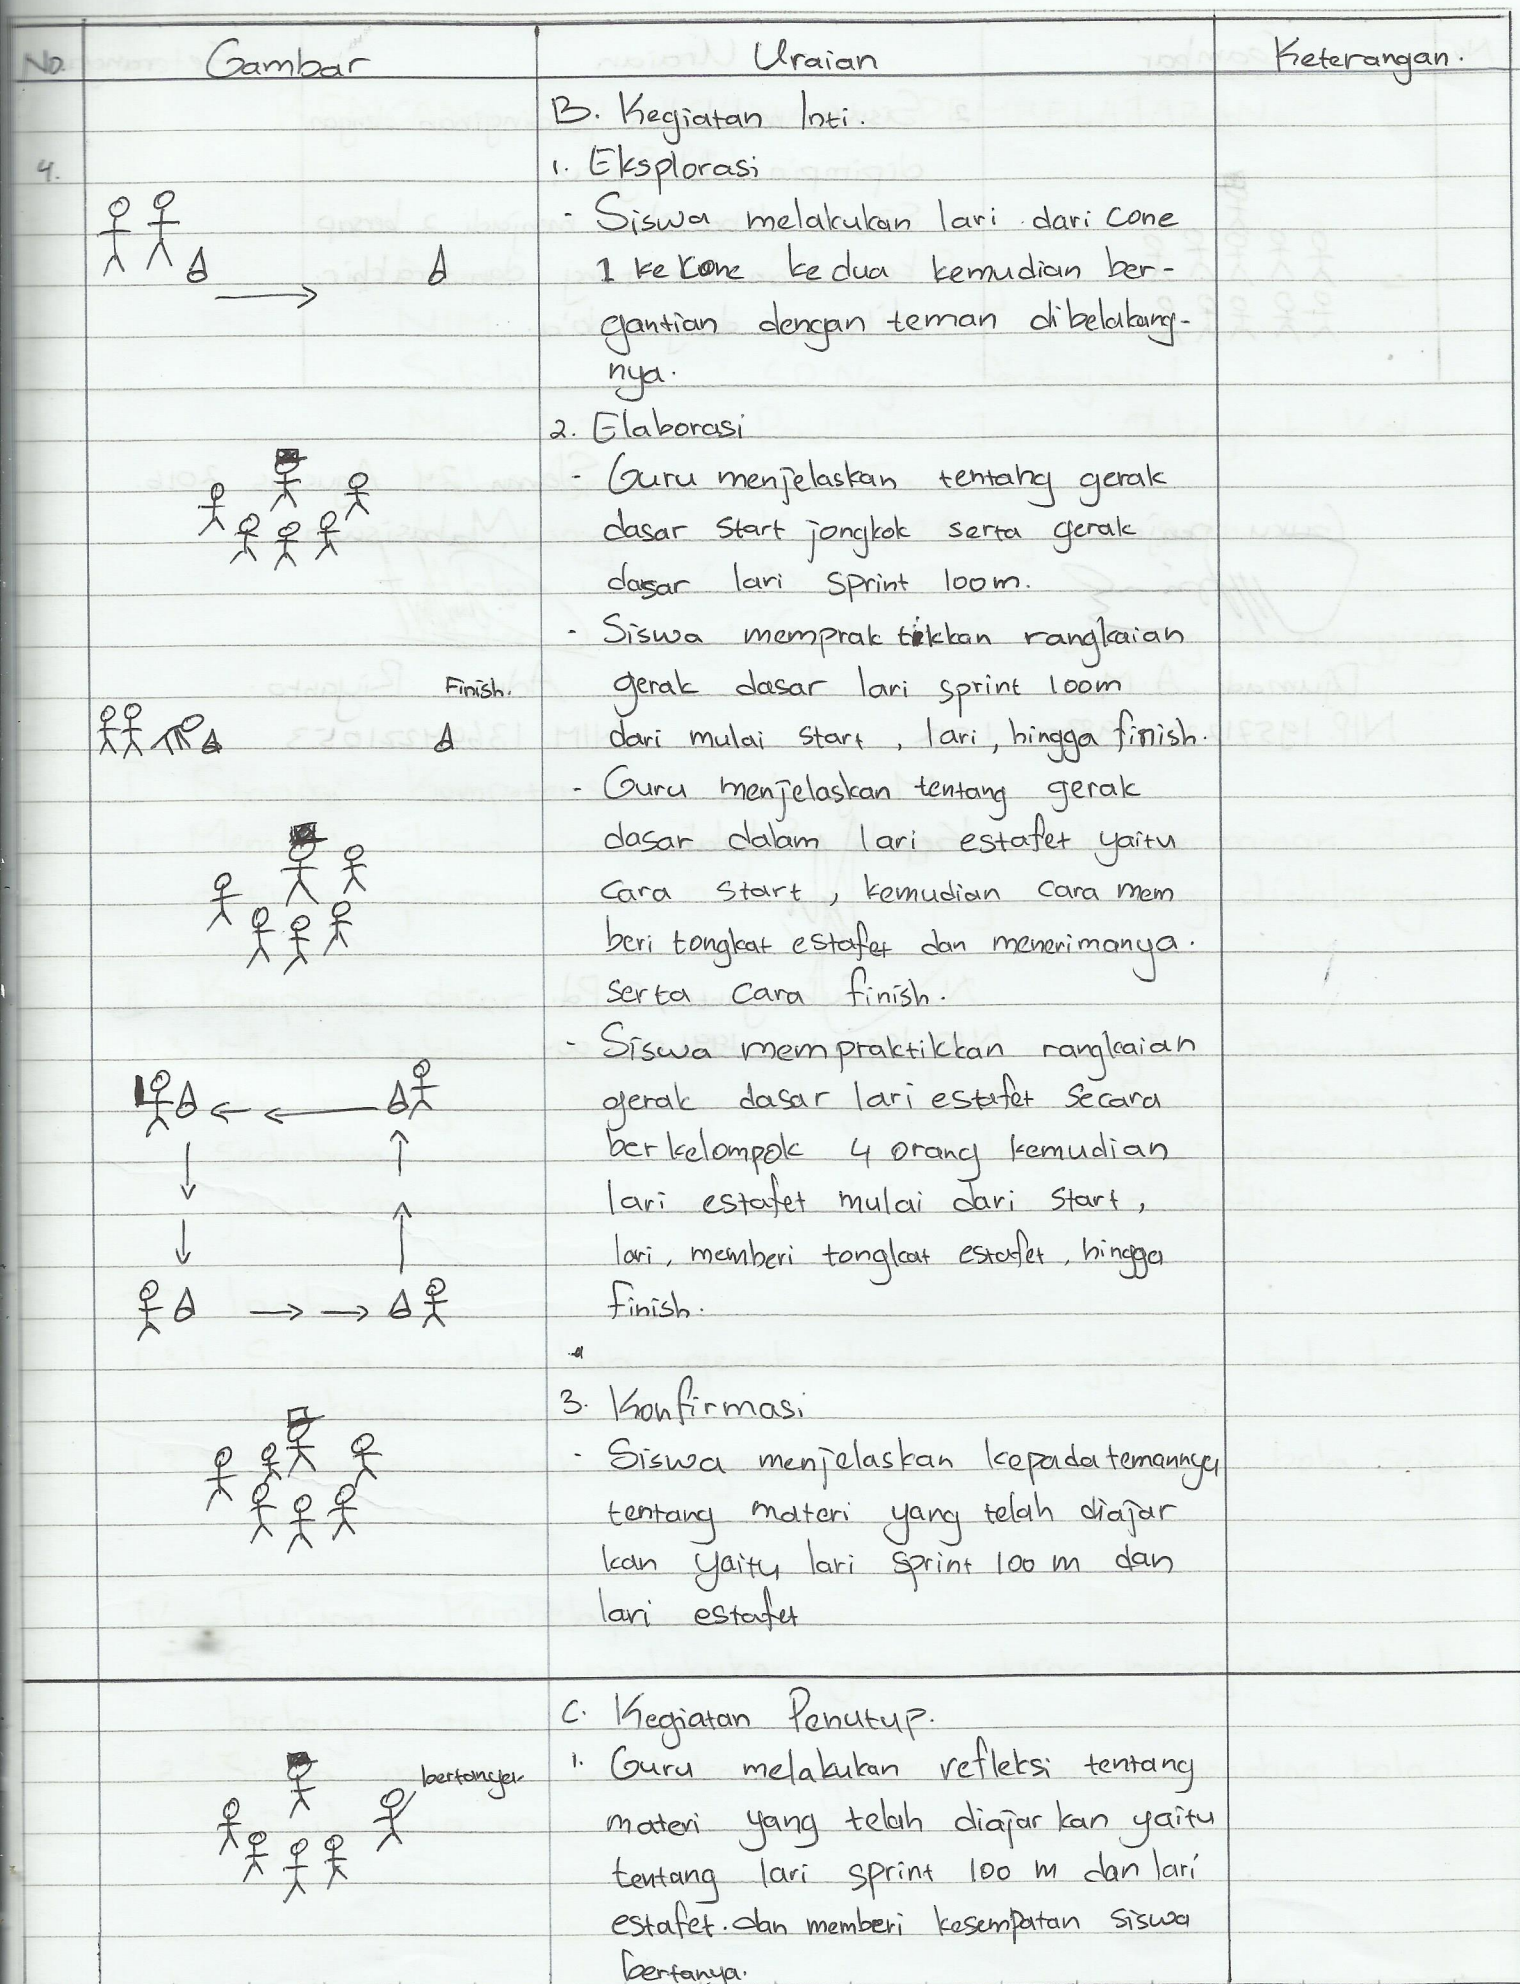 No. Gambar Uraian Keterangan.
B. Kegiatan Inti.
4.
1. Eksplorasi
- Siswa melakukan lari dari cone
1 ke Kone kedua kemudian ber-
gantian dengan teman dibelakang-
nya.
2. Elaborasi
- Guru menjelaskan tentang gerak
dasar Start jongkok serta gerak
dasar lari sprint 100m.
- Siswa mempraktikkan rangkaian
Finish.
gerak dasar lari sprint 100m
dari mulai start, lari, hingga finish.
- Guru menjelaskan tentang gerak
dasar dalam lari estafet yaitu
cara start, kemudian cara mem
beri tongkat estafet dan menerimanya.
serta cara finish.
- Siswa mempraktikkan rangkaian
gerak dasar lari estafet secara
berkelompok 4 orang kemudian
lari estafet mulai dari start,
lari, memberi tongkat estafet, hingga
finish.
3. Konfirmasi
- Siswa menjelaskan kepada temannya
tentang materi yang telah diajar
kan yaitu lari sprint 100 m dan
lari estafet
C. Kegiatan Penutup.
bertanya
1. Guru melakukan refleksi tentang
materi yang telah diajarkan yaitu
tentang lari sprint 100 m dan lari
estafet. dan memberi kesempatan siswa
bertanya.